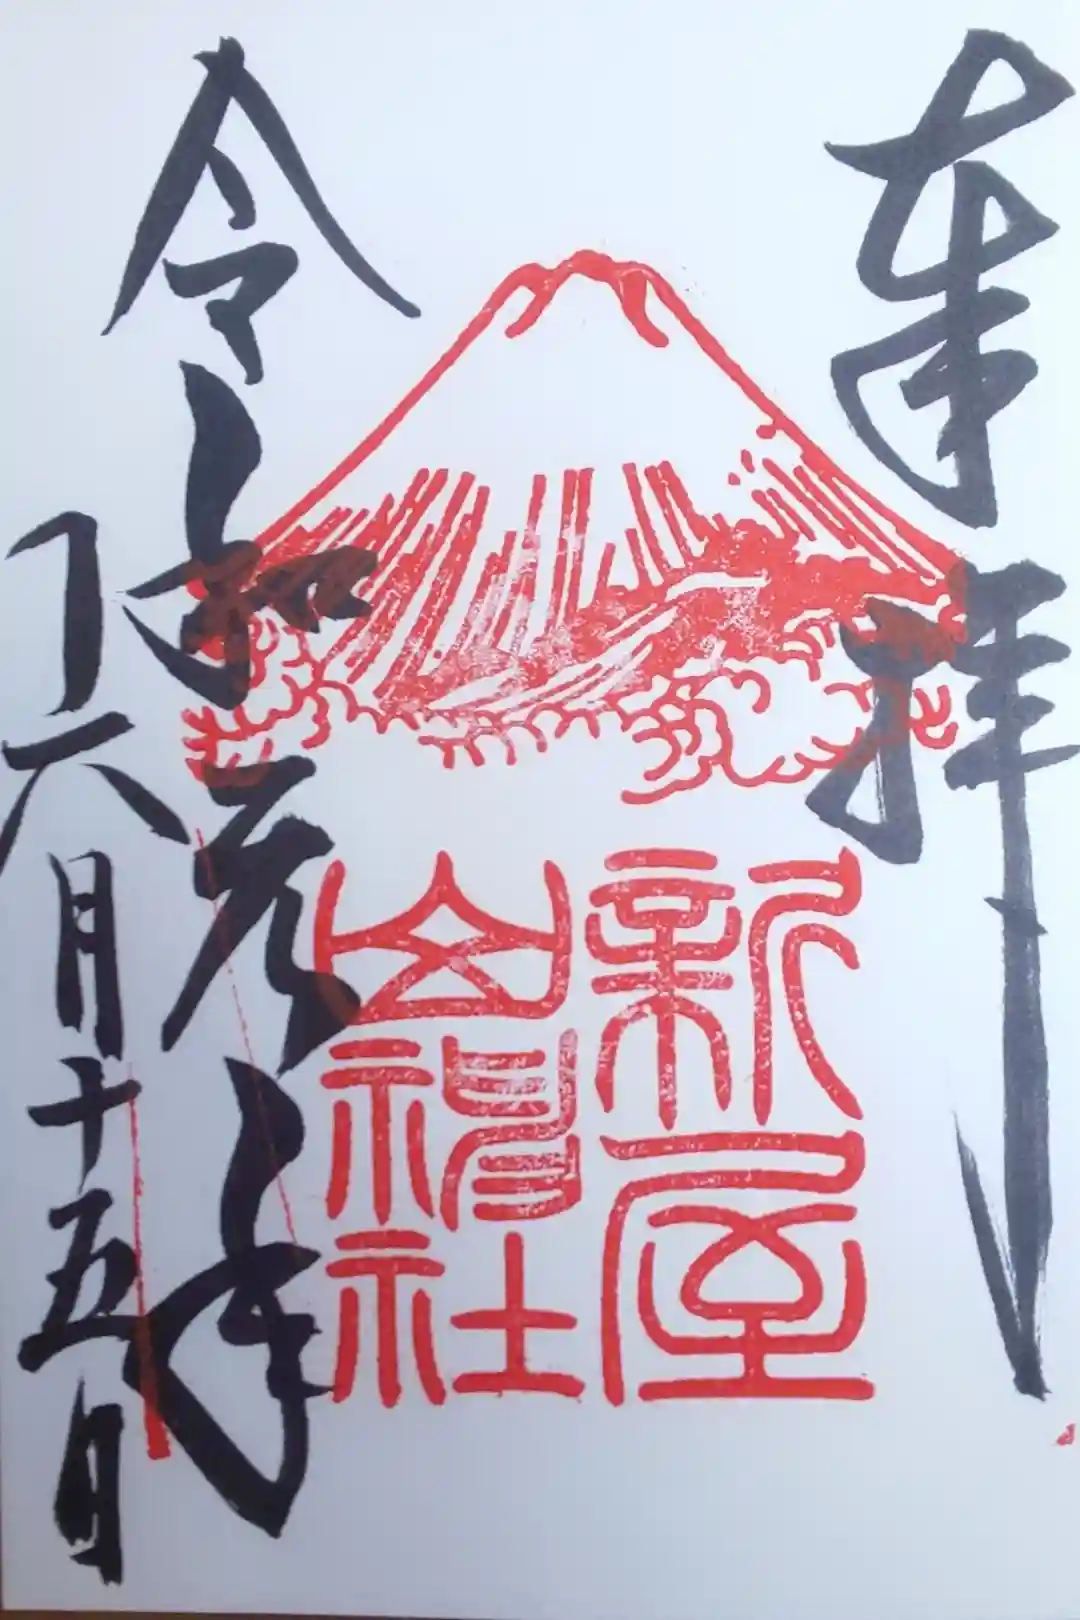 奉拝
新屋
山神社
令和元年
六月十五日